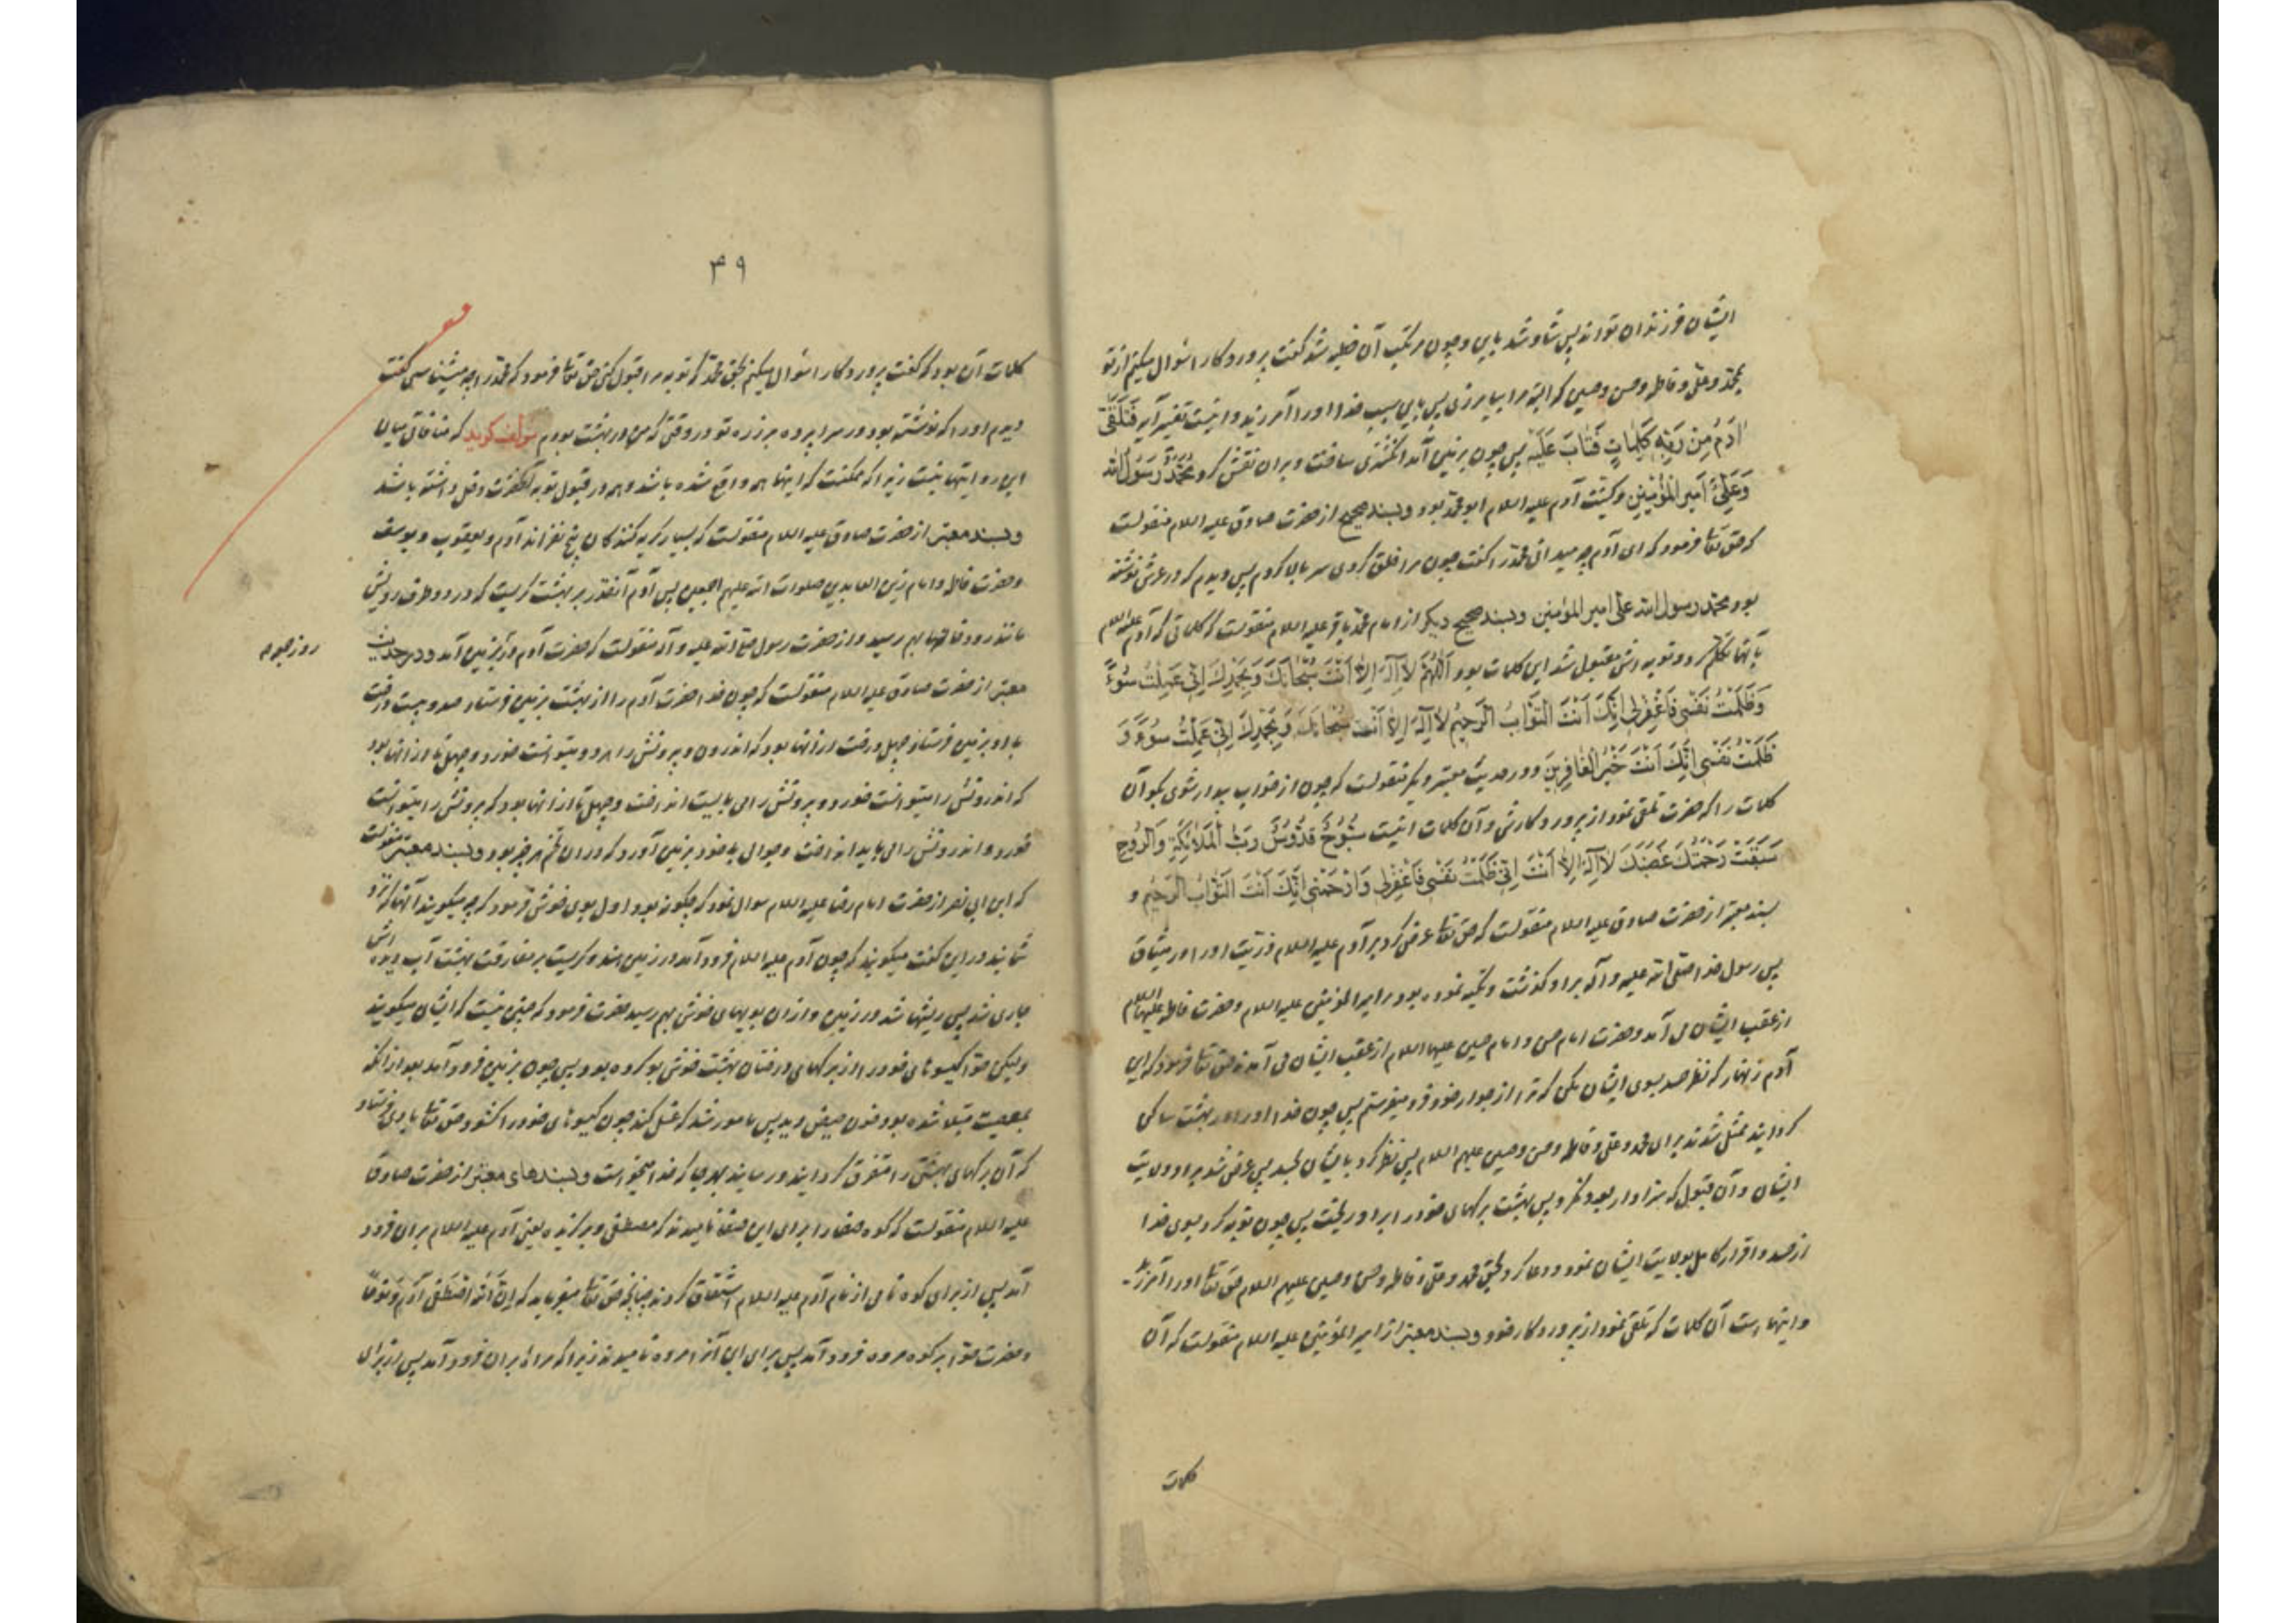 ایشان فرزندان تواند پس شاد شد باین و چون مرتکب آن خطیئه شد گفت پروردگارا سؤال میکنم از تو
بمحمد و علی و فاطمه و حسن و حسین که البته مرا بیامرزی پس باین سبب خدا او را آمرزید و اینست تفسیر آیه فَتَلَقّٰی
اٰدَمُ مِنْ رَبِّهِ کَلِمٰاتٍ فَتٰابَ عَلَیْهِ پس چون بزمین آمد انگشتری ساخت و بران نقش کرد مُحَمَّدٌ رَسُولُ اللّٰه
وَعَلِیٌّ اَمیرُ الْمُؤْمِنینِ و کنیت آدم علیه السلام ابو محمد بود و بسند صحیح از حضرت صادق علیه السلام منقولست
که حق تعالی فرمود که ای آدم چه میدانی محمد را گفت چون مرا خلق کردی سر بالا کردم پس دیدم که در عرش نوشته
بود محمد رسول الله علی امیر المؤمنین و بسند صحیح دیگر از امام محمد باقر علیه السلام منقولست که کلماتی که آدم علیه السلام
بآنها تکلم کرد و توبه اش مقبول شد این کلمات بود اَللّٰهُمَّ لاٰ اِلٰهَ اِلاّٰ اَنْتَ سُبْحٰانَکَ وَبِحَمْدِکَ اِنّی عَمِلْتُ سُوءً
وَظَلَمْتُ نَفْسی فَاغْفِرْلی اِنَّکَ اَنْتَ التَّوّٰابُ الرَّحیمُ لاٰ اِلٰهَ اِلاّٰ اَنْتَ سُبْحٰانَکَ وَبِحَمْدِکَ اِنّی عَمِلْتُ سُوءً وَ
ظَلَمْتُ نَفْسی اِنَّکَ اَنْتَ خَیْرُ الْغٰافِرینَ و در حدیث معتبر دیگر منقولست که چون از خواب بیدار شوی بگو آن
کلمات را که حضرت تلقی نمود از پروردگارش و آن کلمات اینست سُبُّوحٌ قُدُّوسٌ رَبُّ الْمَلاٰئِکَةِ وَالرُّوحِ
سَبَقَتْ رَحْمَتُکَ غَضَبَکَ لاٰ اِلٰهَ اِلاّٰ اَنْتَ اِنّی ظَلَمْتُ نَفْسی فَاغْفِرْلی وَارْحَمْنی اِنَّکَ اَنْتَ التَّوّٰابُ الرَّحیمُ و
بسند معتبر از حضرت صادق علیه السلام منقولست که حق تعالی عرض کرد بر آدم علیه السلام ذریت او را در میثاق
پس رسول خدا صلی الله علیه و آله بر او گذشت و تکیه نموده بود بر امیر المؤمنین علیه السلام و حضرت فاطمه علیها السلام
از عقب ایشان می آمد و حضرت امام حسن و امام حسین علیهما السلام از عقب ایشان می آمدند حق تعالی فرمود که ای
آدم زنهار که نظر حسد بسوی ایشان مکن که ترا از جوار خود فرو میفرستم پس چون خدا او را در بهشت ساکن
گردانید ممثل شدند برای محمد و علی و فاطمه و حسن و حسین علیهم السلام پس نظر کرد بایشان بحسد پس عرض شد بر او ولایت
ایشان و آن قبول که سزاوار بود نکرد پس بهشت برگهای خود را بر او ریخت پس چون توبه کرد بسوی خدا
از حسد و اقرار کامل بولایت ایشان نمود و دعا کرد بحق محمد و علی و فاطمه و حسن و حسین علیهم السلام حق تعالی او را آمرزید
و اینها است آن کلمات که تلقی نمود از پروردگار خود و بسند معتبر از امیر المؤمنین علیه السلام منقولست که آن
کلمات
۳۹
کلمات آن بود که گفت پروردگارا سؤال میکنم بحق محمد که توبه مرا قبول کنی حق تعالی فرمود که محمد را چه میشناسی گفت
دیدم او را که نوشته بود در سراپرده بزرگ تو در وقتی که من در بهشت بودم مؤلف گوید که منافاتی میان
این روایتها نیست زیرا که ممکنست که اینها همه واقع شده باشد و همه در قبول توبه آنحضرت دخل داشته باشد
و بسند معتبر از حضرت صادق علیه السلام منقولست که بسیار گریه کنندگان پنج نفراند آدم و یعقوب و یوسف
و حضرت فاطمه و امام زین العابدین صلوات الله علیهم اجمعین پس آدم آنقدر بر بهشت گریست که در دو طرف رویش
مانند رودخانها بهم رسید و از حضرت رسول صلی الله علیه و آله منقولست که حضرت آدم در بزمین آمد و در حدیث
روز جمعه
معتبر از حضرت صادق علیه السلام منقولست که چون خدا حضرت آدم را از بهشت بزمین فرستاد صد و بیست درخت
با او بزمین فرستاد چهل درخت از انها بود که اندرون و بیرونش را هر دو میتوانست خورد و چهل تا از انها بود
که اندرونش را میتوانست خورد و بیرونش را می بایست انداخت و چهل تا از انها بود که بیرونش را میتوانست
خورد و اندرونش را می باید انداخت و جوالی با خود بزمین آورد که در ان تخم هر چیز بود و بسند معتبر منقولست
که ابن ابی نصر از حضرت امام رضا علیه السلام سؤال نمود که چگونه بود اول بوی خوش فرمود که چه میگویند آنها که نزد
شمایند در این گفت میگویند که چون آدم علیه السلام فرود آمد در زمین هند و گریست بر مفارقت بهشت آب دیده اش
جاری شد پس ریشها شد در زمین و از ان بویهای خوش بهم رسید حضرت فرمود که چنین نیست که ایشان میگویند
ولیکن حوا گیسوهای خود را از برگهای درختان بهشت خوش بو کرده بود پس چون بزمین فرود آمد بعد از آنکه
بمعصیت مبتلا شده بود خون حیض دید پس مامور شد که غسل کند چون گیسوهای خود را گشود حق تعالی بادی فرستاد
که آن برگهای بهشتی را متفرق گردانید و رسانید بهر جا که خدا میخواست و بسندهای معتبر از حضرت صادق
علیه السلام منقولست که کوه صفا را برای این صفا نامیدند که مصطفی و برگزیده یعنی آدم علیه السلام بران فرود
آمد پس از برای کوه نامی از نام آدم علیه السلام اشتقاق کردند چنانچه حق تعالی میفرماید که اِنَّ اللّٰهَ اصْطَفٰی اٰدَمَ وَنُوحًا
و حضرت حوا بر کوه مروه فرود آمد پس برای این آنرا مروه نامیدند زیرا که مراة بران فرود آمد پس از برای